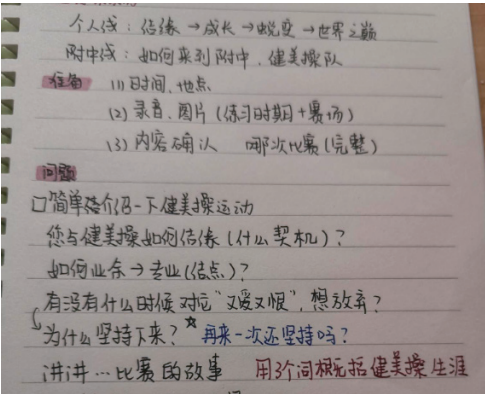 个人线：结缘→成长→蜕变→世界之巅
附中线：如何来到附中、健美操队
准备 (1) 时间、地点
(2) 录音、图片(练习时期+赛场)
(3) 内容确认 哪次比赛(完整)
问题
□简单给介绍一下健美操运动
您与健美操如何结缘(什么契机)？
如何业余→专业(结点)？
有没有什么时候对它“又爱又恨”，想放弃？
为什么坚持下来？☆再来一次还坚持吗？
讲讲…比赛的故事 用3个词概括健美操生涯